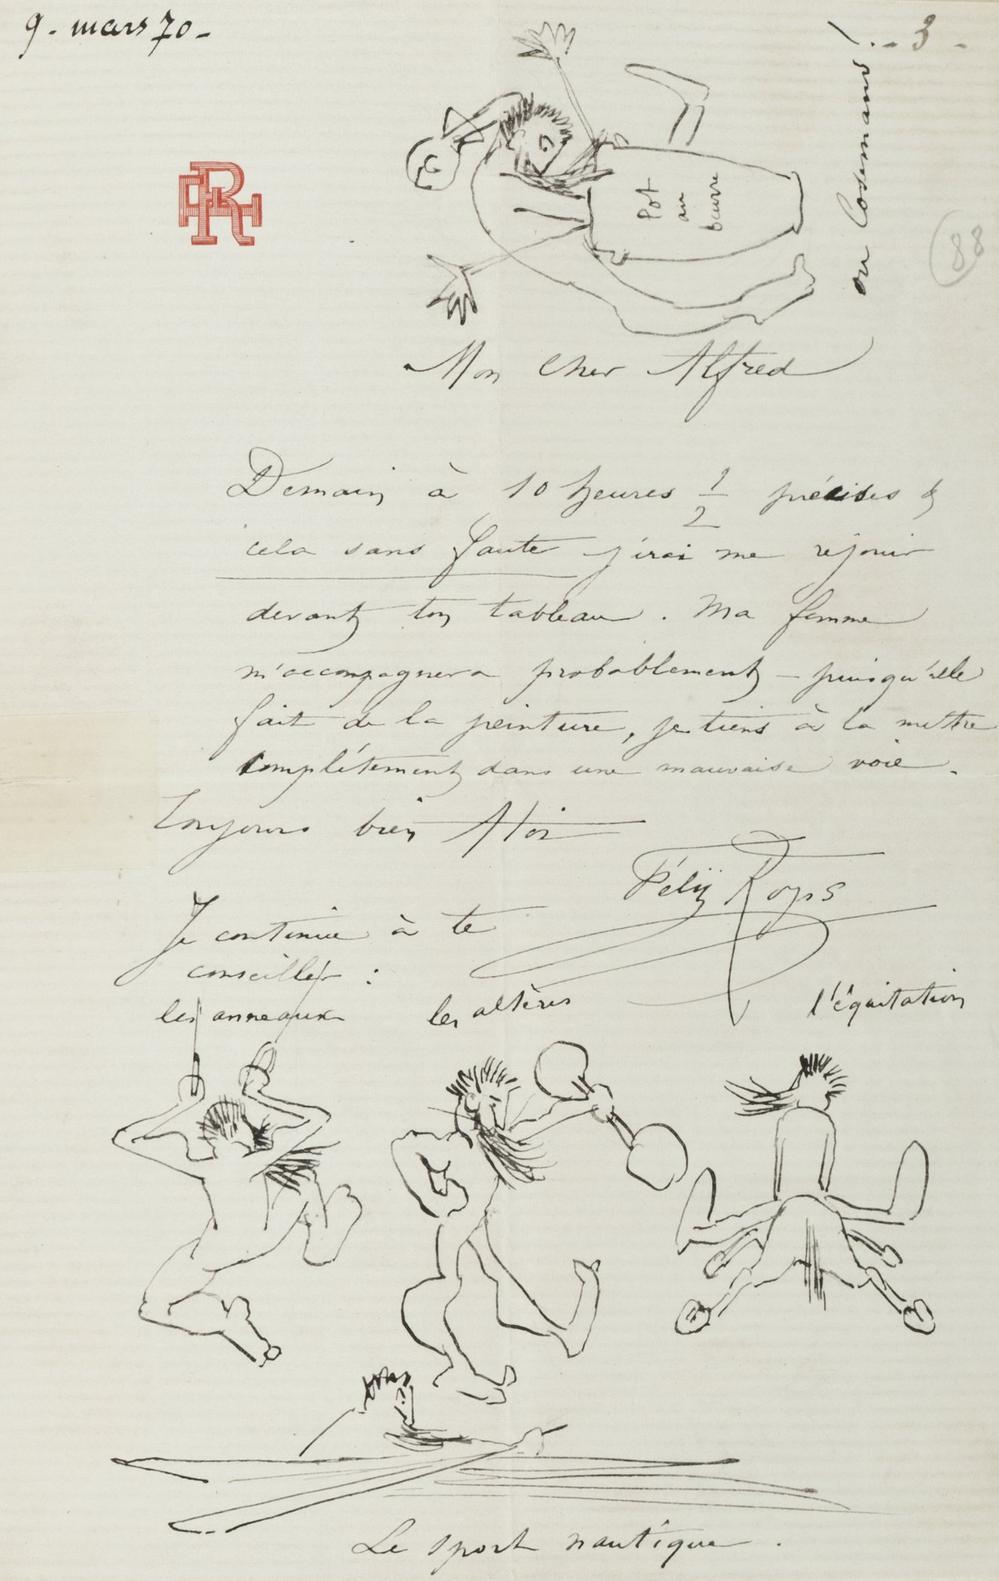 9 - mars 70 -
- 3 -
Pot
au
beurre
ou
88
Mon cher Alfred
Demain à 10 heures 1/2 précises &
cela sans faute j'irai me réjouir
devant ton tableau. Ma femme
m'accompagnera probablement - puisqu'elle
fait de la peinture, je tiens à la mettre
complétement dans une mauvaise voie.
Toujours bien A toi
Félix Rops
Je continue à te
conseiller :
les anneaux les altères l'équitation
Le sport nautique.